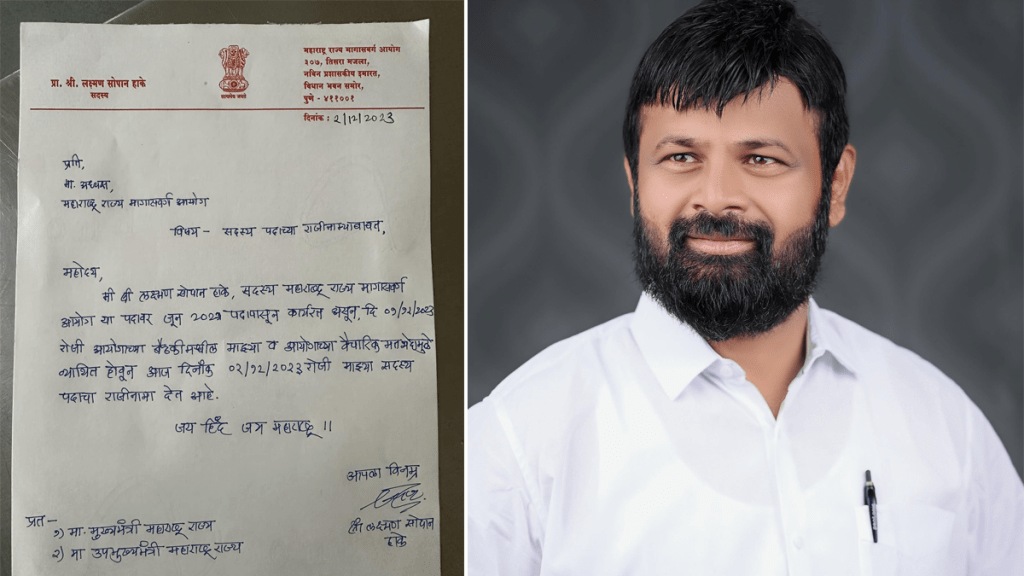 प्रा. श्री. लक्ष्मण सोपान हाके
सदस्य
सत्यमेव जयते
महाराष्ट्र राज्य मागासवर्ग आयोग
३०७, तिसरा मजला,
नविन प्रशासकीय इमारत,
विधान भवन समोर,
पुणे - ४११००१
दिनांक : 2/12/2023
प्रति,
मा. अध्यक्ष,
महाराष्ट्र राज्य मागासवर्ग आयोग
विषय - सदस्य पदाच्या राजीनाम्याबाबत,
महोदय,
मी श्री लक्ष्मण सोपान हाके, सदस्य महाराष्ट्र राज्य मागासवर्ग
आयोग या पदावर जून २०२१ पदापासून कार्यरत असून, दि ०१/१२/२०२३
रोजी आयोगाच्या बैठकीमधील माझ्या व आयोगाच्या वैचारिक मतभेदामुळे
व्यथित होवून आज दिनांक ०२/१२/२०२३ रोजी माझ्या सदस्य
पदाचा राजीनामा देत आहे.
जय हिंद जय महाराष्ट्र !!
आपला विनम्र
श्री लक्ष्मण सोपान
हाके
प्रत -
१) मा. मुख्यमंत्री महाराष्ट्र राज्य
२) मा उपमुख्यमंत्री महाराष्ट्र राज्य